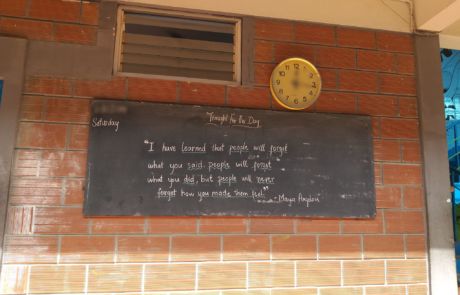 Thought for the Day
Saturday
"I have learned that people will forget
what you said, people will forget
what you did, but people will never
forget how you made them feel"
- Maya Angelou